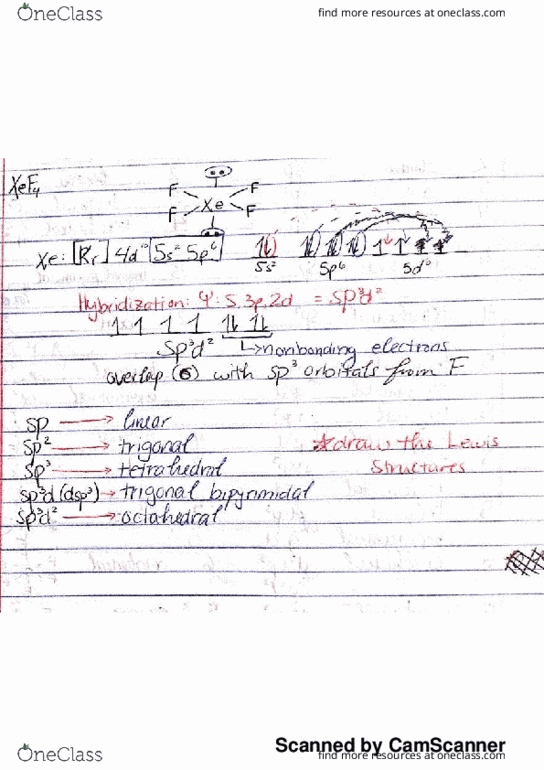 OneClass
find more resources at oneclass.com
XeF4
F F
Xe
F F
Xe: [Kr] 4d¹⁰ 5s² 5p⁶ 5s² 5p⁶ 5d⁰
Hybridization: Ψ: s, 3p, 2d = sp³d²
sp³d² ↳ nonbonding electrons
overlap (6) with sp³ orbitals from F
sp → linear
sp² → trigonal
sp³ → tetrahedral
sp³d (dsp³) → trigonal bipyrimidal
sp³d² → octahedral
*draw the Lewis
Structures
Scanned by CamScanner
OneClass
find more resources at oneclass.com